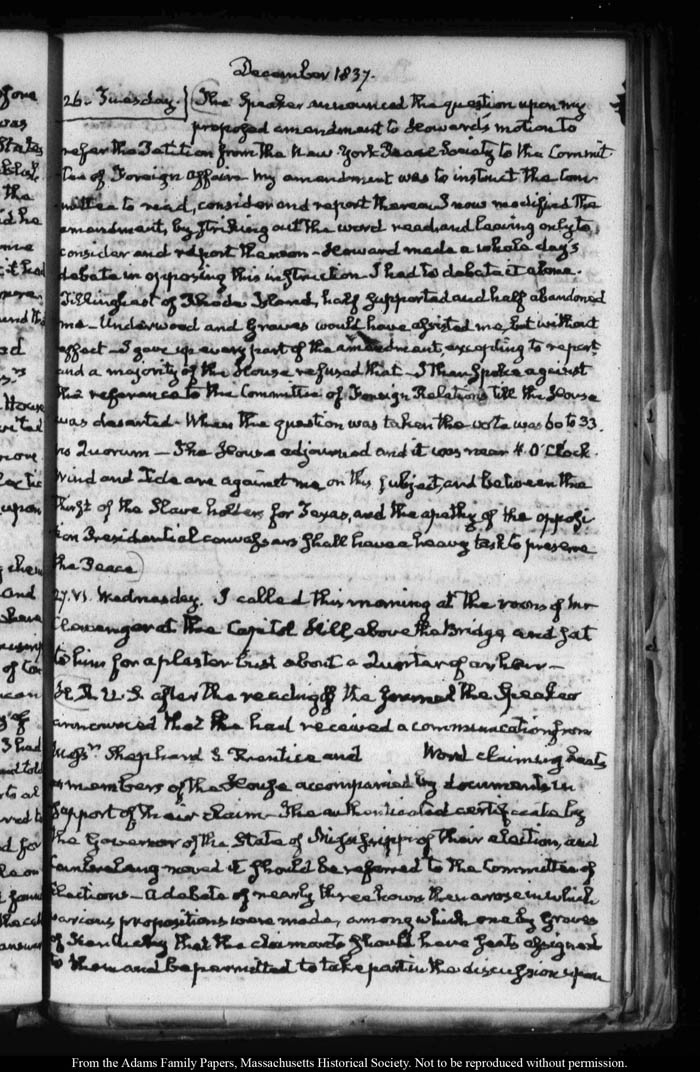 December 1837.
26. Tuesday. The Speaker announced the question upon my
proposed amendment to Howard's motion to
refer the Petition from the New York Peace Society to the Commit-
tee of Foreign Affairs My amendment was to instruct the Com-
mittee to read, consider and report thereon I now modified the
amendment, by striking out the word read and leaving only to,
consider and report thereon - Howard made a whole day's
debate in opposing this instruction. I had to debate it alone.
Tillinghast of Rhode Island, half supported and half abandoned
me - Underwood and Graves would have assisted me, but without
effect - I gave up every part of the amendment, excepting to report
and a majority of the House refused that - I then spoke against
the reference to the Committee of Foreign Relations till the House
was deserted - When the question was taken the vote was 60 to 33.
no Quorum - The House adjourned and it was near 4. O'Clock.
Wind and Tide are against me on this subject, and between the
thirst of the Slave holders for Texas, and the apathy of the opposi-
tion Presidential canvassers shall have a heavy task to preserve
the Peace
27. VI. Wednesday. I called this morning at the room of Mr
Clevenger at the Capitol Hill above the Bridge and sat
to him for a plaster bust about a Quarter of an hour -
H. R. U. S. after the reading of the journal the Speaker
announced that he had received a communication from
Messrs Shephard S Prentice and Word claiming seats
as members of the House accompanied by documents in
support of their claim - The authenticated certificate by
the Governor of the State of Mississippi of their election, and
moved it should be referred to the Committee of
Elections - A debate of nearly three hours then arose in which
various propositions were made, among which one by Graves
of Kentucky that the claimants should have seats assigned
to them and be permitted to take part in the discussion upon
From the Adams Family Papers, Massachusetts Historical Society. Not to be reproduced without permission.